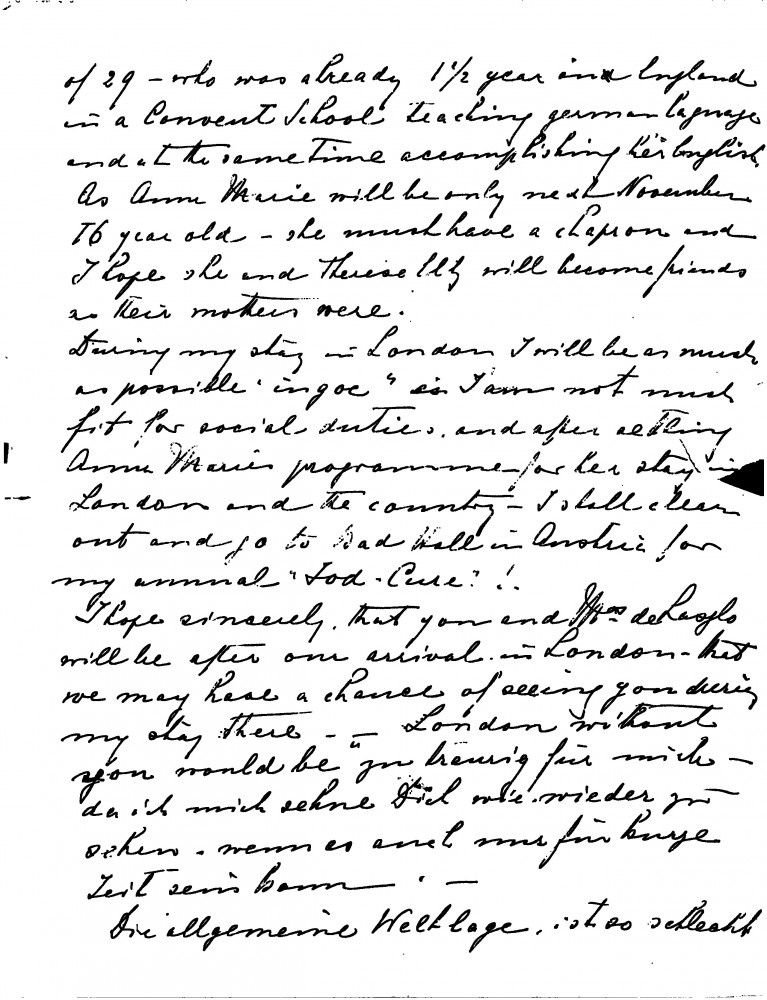 of 29 – who was already 1½ year in England
in a Convent School teaching german laguage
and at the same time accomplishing her English.
As Anne Marie will be only next November
16 year old – she must have a chapron and
I hope she and Therese will become friends
as their mothers were.
During my stay in London I will be as much
as possible "ingoc" I am not much
fit for social duties, and after settling
Anne Maries programme for her stay in
London and the country – I shall clear
out and go to Bad Hall in Austria for
my annual "Jod-Cure"!.
I hope sincerely, that you and Mrs de Laszlo
will be after our arrival in London – that
we may have a chance of seeing you during
my stay there – – London without
you would be "zu traurig für mich –
da ich mich sehne Dich wieder zu
sehen – wenn es auch nur für kurze
Zeit sein kann. –
Die allgemeine Weltlage, ist so schlecht